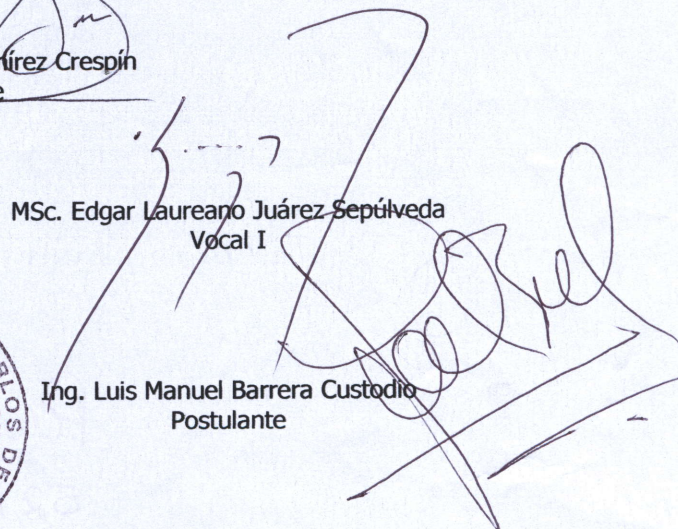 mírez Crespín
e
MSc. Edgar Laureano Juárez Sepúlveda
Vocal I
Ing. Luis Manuel Barrera Custodio
Postulante
OS DE